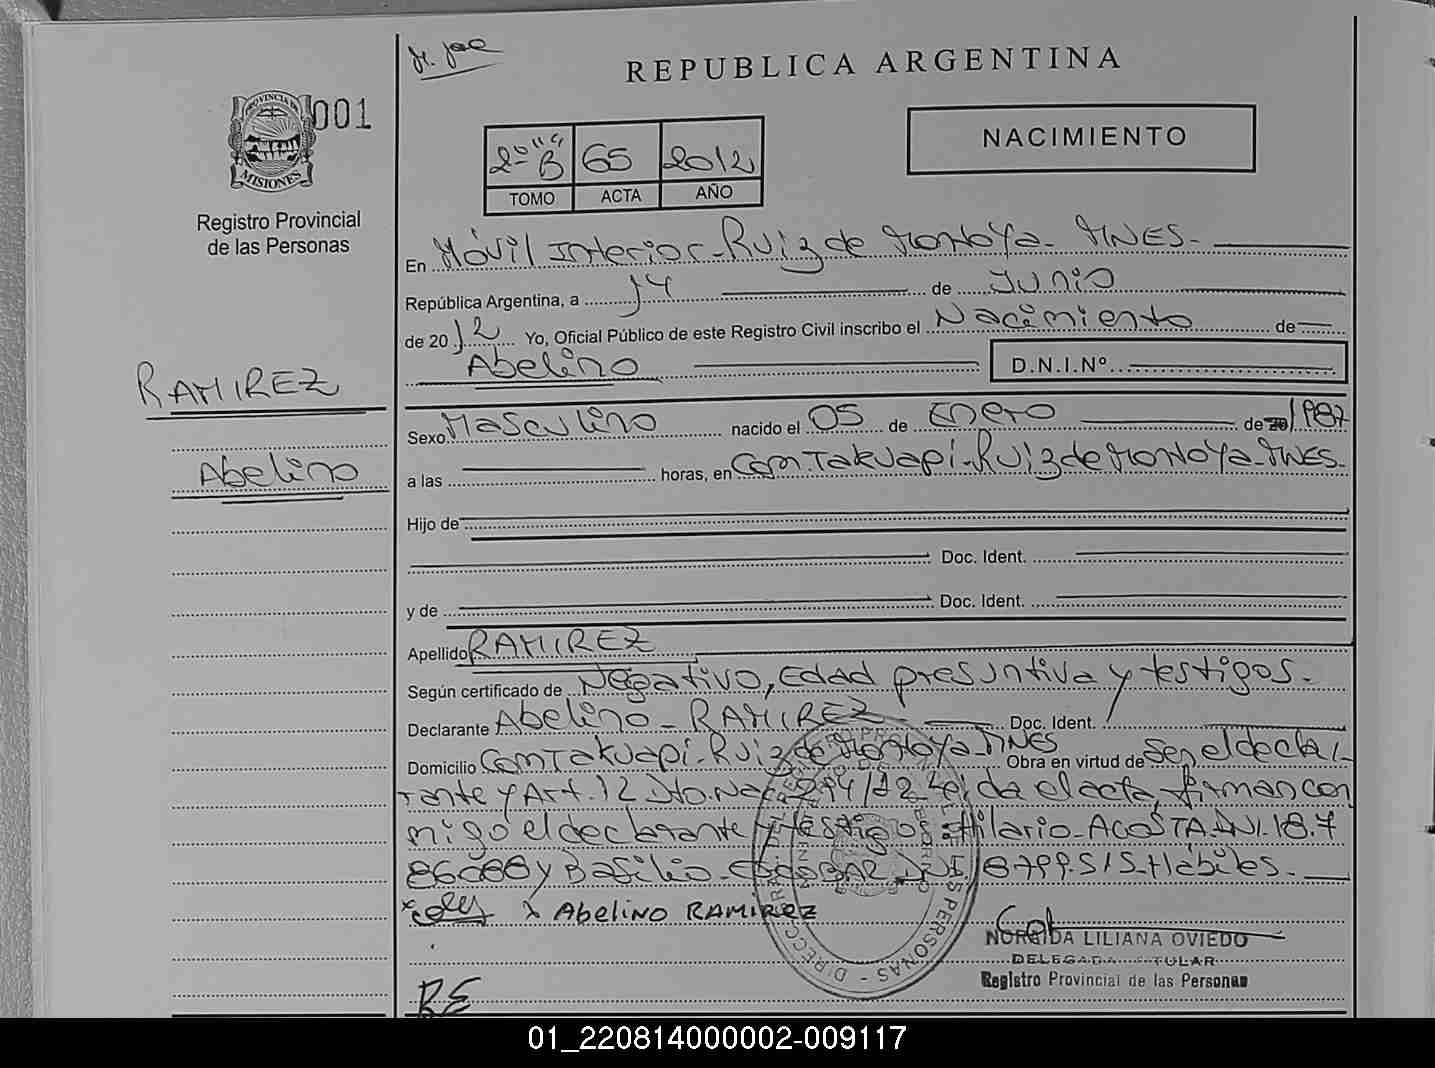 REPUBLICA ARGENTINA
001
PROVINCIA DE
MISIONES
Registro Provincial
de las Personas
NACIMIENTO
2º "B" 65 2012
TOMO ACTA AÑO
En Móvil Interior - Ruiz de Montoya - MNES -
República Argentina, a 14 de Junio
de 2012 Yo, Oficial Público de este Registro Civil inscribo el Nacimiento de
Abelino D.N.I.Nº
RAMIREZ
Abelino
Sexo Masculino nacido el 05 de Enero de 20 1987
a las horas, en Com. Takuapí - Ruiz de Montoya - MNES -
Hijo de
Doc. Ident.
y de Doc. Ident.
Apellido RAMIREZ
Según certificado de Negativo, Edad presuntiva y testigos.
Declarante Abelino - RAMIREZ Doc. Ident.
Domicilio Com Takuapí - Ruiz de Montoya - MNES Obra en virtud de Ser el decla
rante y Art. 12 Dto. Nac. 294/12 Leída el acta, firman con
migo el declarante y testigos: Hilario - ACOSTA DNI. 18.7
86088 y Basilio - ESCOBAR DNI. 8799515 - Hábiles.
x x Abelino RAMIREZ
NORGIDA LILIANA OVIEDO
DELEGADA TITULAR
Registro Provincial de las Personas
RE
01_220814000002-009117